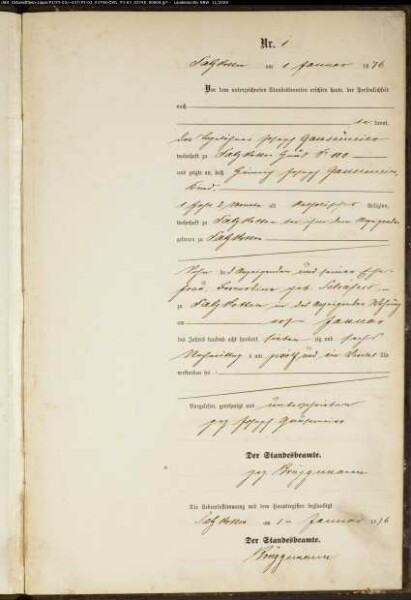 Nr. 1
Salzkotten am 1 Januar 1876
Vor dem unterzeichneten Standesbeamten erschien heute, der Persönlichkeit
nach
kannt,
der Tagelöhner Joseph
wohnhaft zu Salzkotten Haus Nr
und zeigte an, daß Heinrich Joseph
Kind
1 Jahr 2 Monate alt, katholischer Religion,
wohnhaft zu Salzkotten bei ihm dem Anzeigenden
geboren zu Salzkotten
Sohn des Anzeigenden und seiner Ehe-
frau, geb.
zu Salzkotten in des Anzeigenden Wohnung
am ersten Januar
des Jahres tausend acht hundert sieben zig und sechs
Nachmittags um zwölf und ein Viertel Uhr
verstorben sei
Vorgelesen, genehmigt und unterschrieben
gez Joseph
Der Standesbeamte.
gez Brüggemann
Die Uebereinstimmung mit dem Hauptregister beglaubigt
Salzkotten am 1 ten Januar 1876
Der Standesbeamte.
Brüggemann